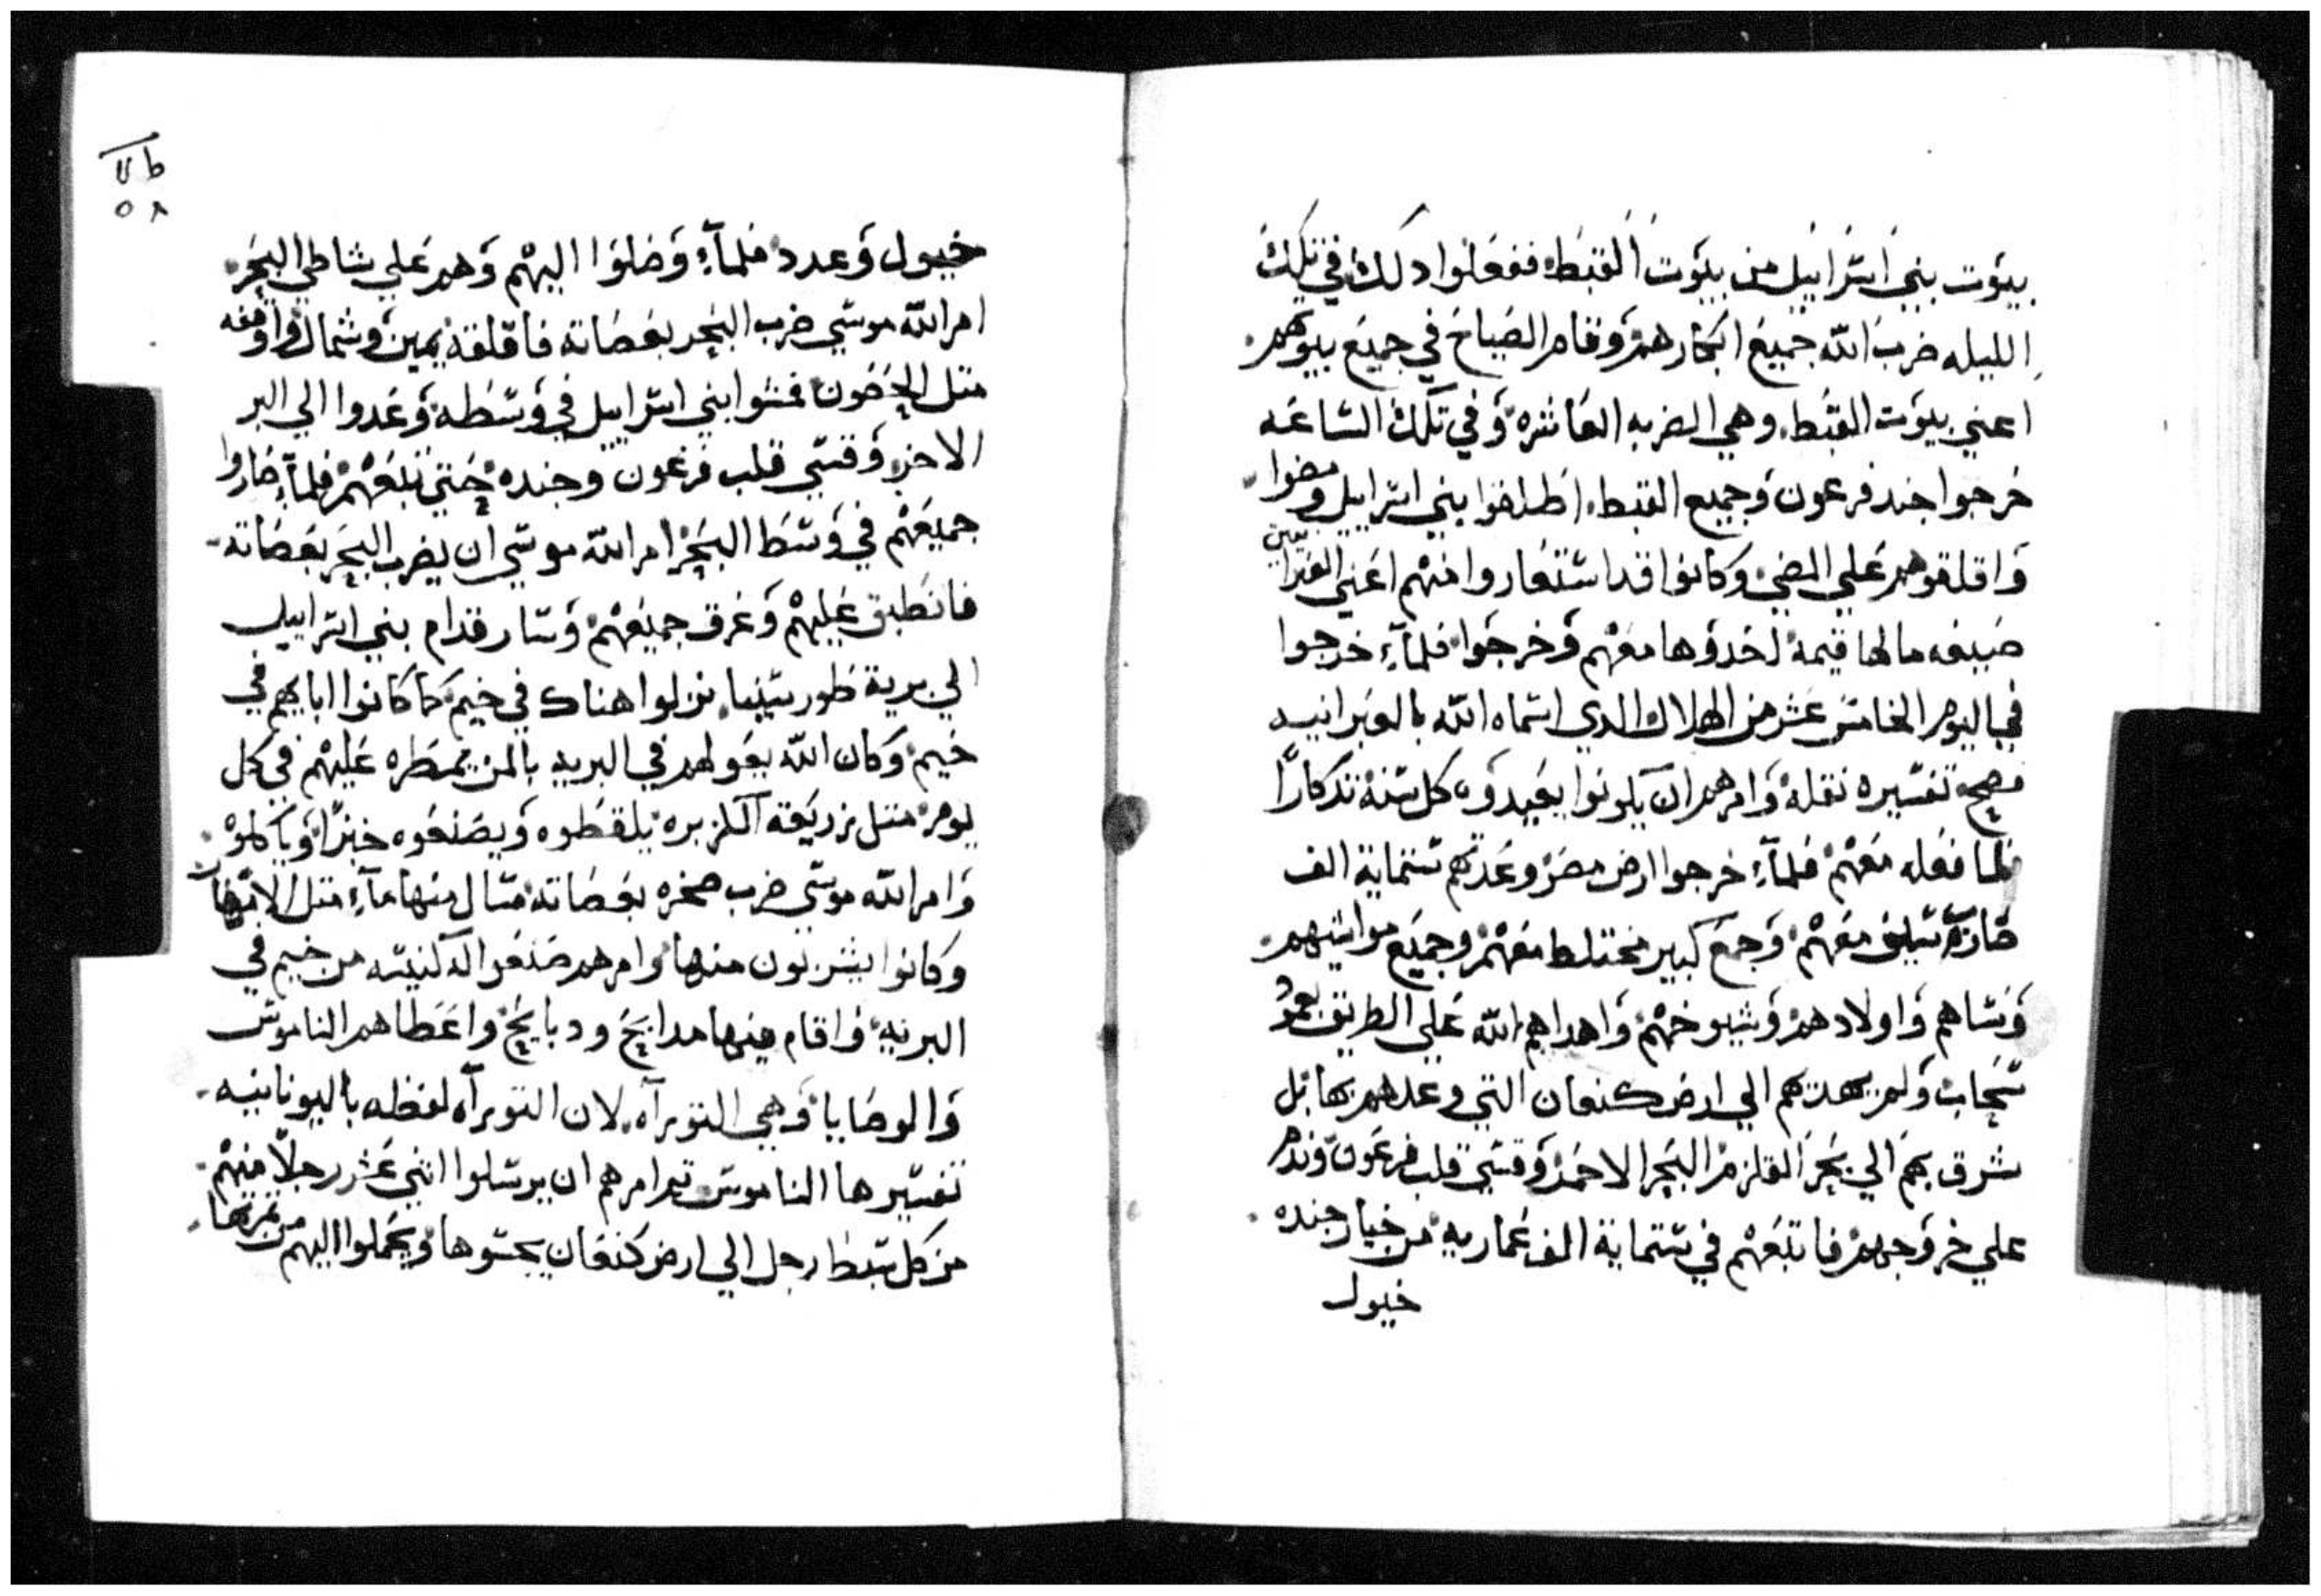 بيوت بني اسراييل من بيوت القبط ففعلوا دلك في تلك
الليله ضرب الله جميع ابكارهم وقام الصياح في جميع بيوتهم
اعني بيوت القبط وهي الضربه العاشره وفي تلك الساعه
خرجوا جند فرعون وجميع القبط اطلقوا بني اسراييل ومضوا
واقلقوهم علي المضي وكانوا قد استعاروا منهم اعني
ما لها قيمة اخدوها معهم وخرجوا فلمآء خرجوا
في اليوم الخامس عشر من الهلال الدي اسماه الله بالعبرانيه
فصح تفسيره نقله وامرهم ان يكونوا يعيدوه كل سنة تدكارًا
لما فعله معهم فلمآء خرجوا ارض مصر وعدتهم ستماية الف
معهم وجمع كبير مختلط معهم وجميع مواشيهم
ونساهم واولادهم وشيوخهم واهداهم الله علي الطريق بعمود
سحاب ولم يهديهم الي ارض كنعان التي وعدهم بها بل
شرق بهم الي بحر القلزم البحر الاحمر وقسي قلب فرعون وندم
علي خروجهم فاتبعهم في ستماية الف عماريه من خيار جنده
خيول
طلا
٥٨
خيول وعدد فلمآء وصلوا اليهم وهم علي شاطي البحر
امر الله موسي ضرب البحر بعصاته فاقلقة يمين وشمال واوقفه
متل الحصون فمشوا بني اسراييل في وسطه وعدوا الي البر
الاخر وقسي قلب فرعون وجنده حتي تبعهم فلمآء صاروا
جميعهم في وسط البحر امر الله موسي ان يضرب البحر بعصاته
فانطبق عليهم وغرق جميعهم وسار قدام بني اسراييل
الي برية طور سينا نزلوا هناك في خيم كما كانوا اباهم في
خيم وكان الله يعولهم في البريه بالمن يمطره عليهم في كل
يوم متل زريعة الكزبره يلقطوه ويصنعوه خبزًا وياكلوه
وامر الله موسي ضرب صخره بعصاته فسال منها مآء متل الانهار
وكانوا يشربون منها وامرهم صنعوا له كنيسه من خيم في
البريه واقام فيها مدابح ودبايح واعطاهم الناموس
والوصايا وهي التوراه لان التوراه لفظه باليونانيه
تفسيرها الناموس تم امرهم ان يرسلوا اتني عشر رجلًا منهم
من كل سبط رجل الي ارض كنعان يجسوها ويحملوا اليهم من تمرتها